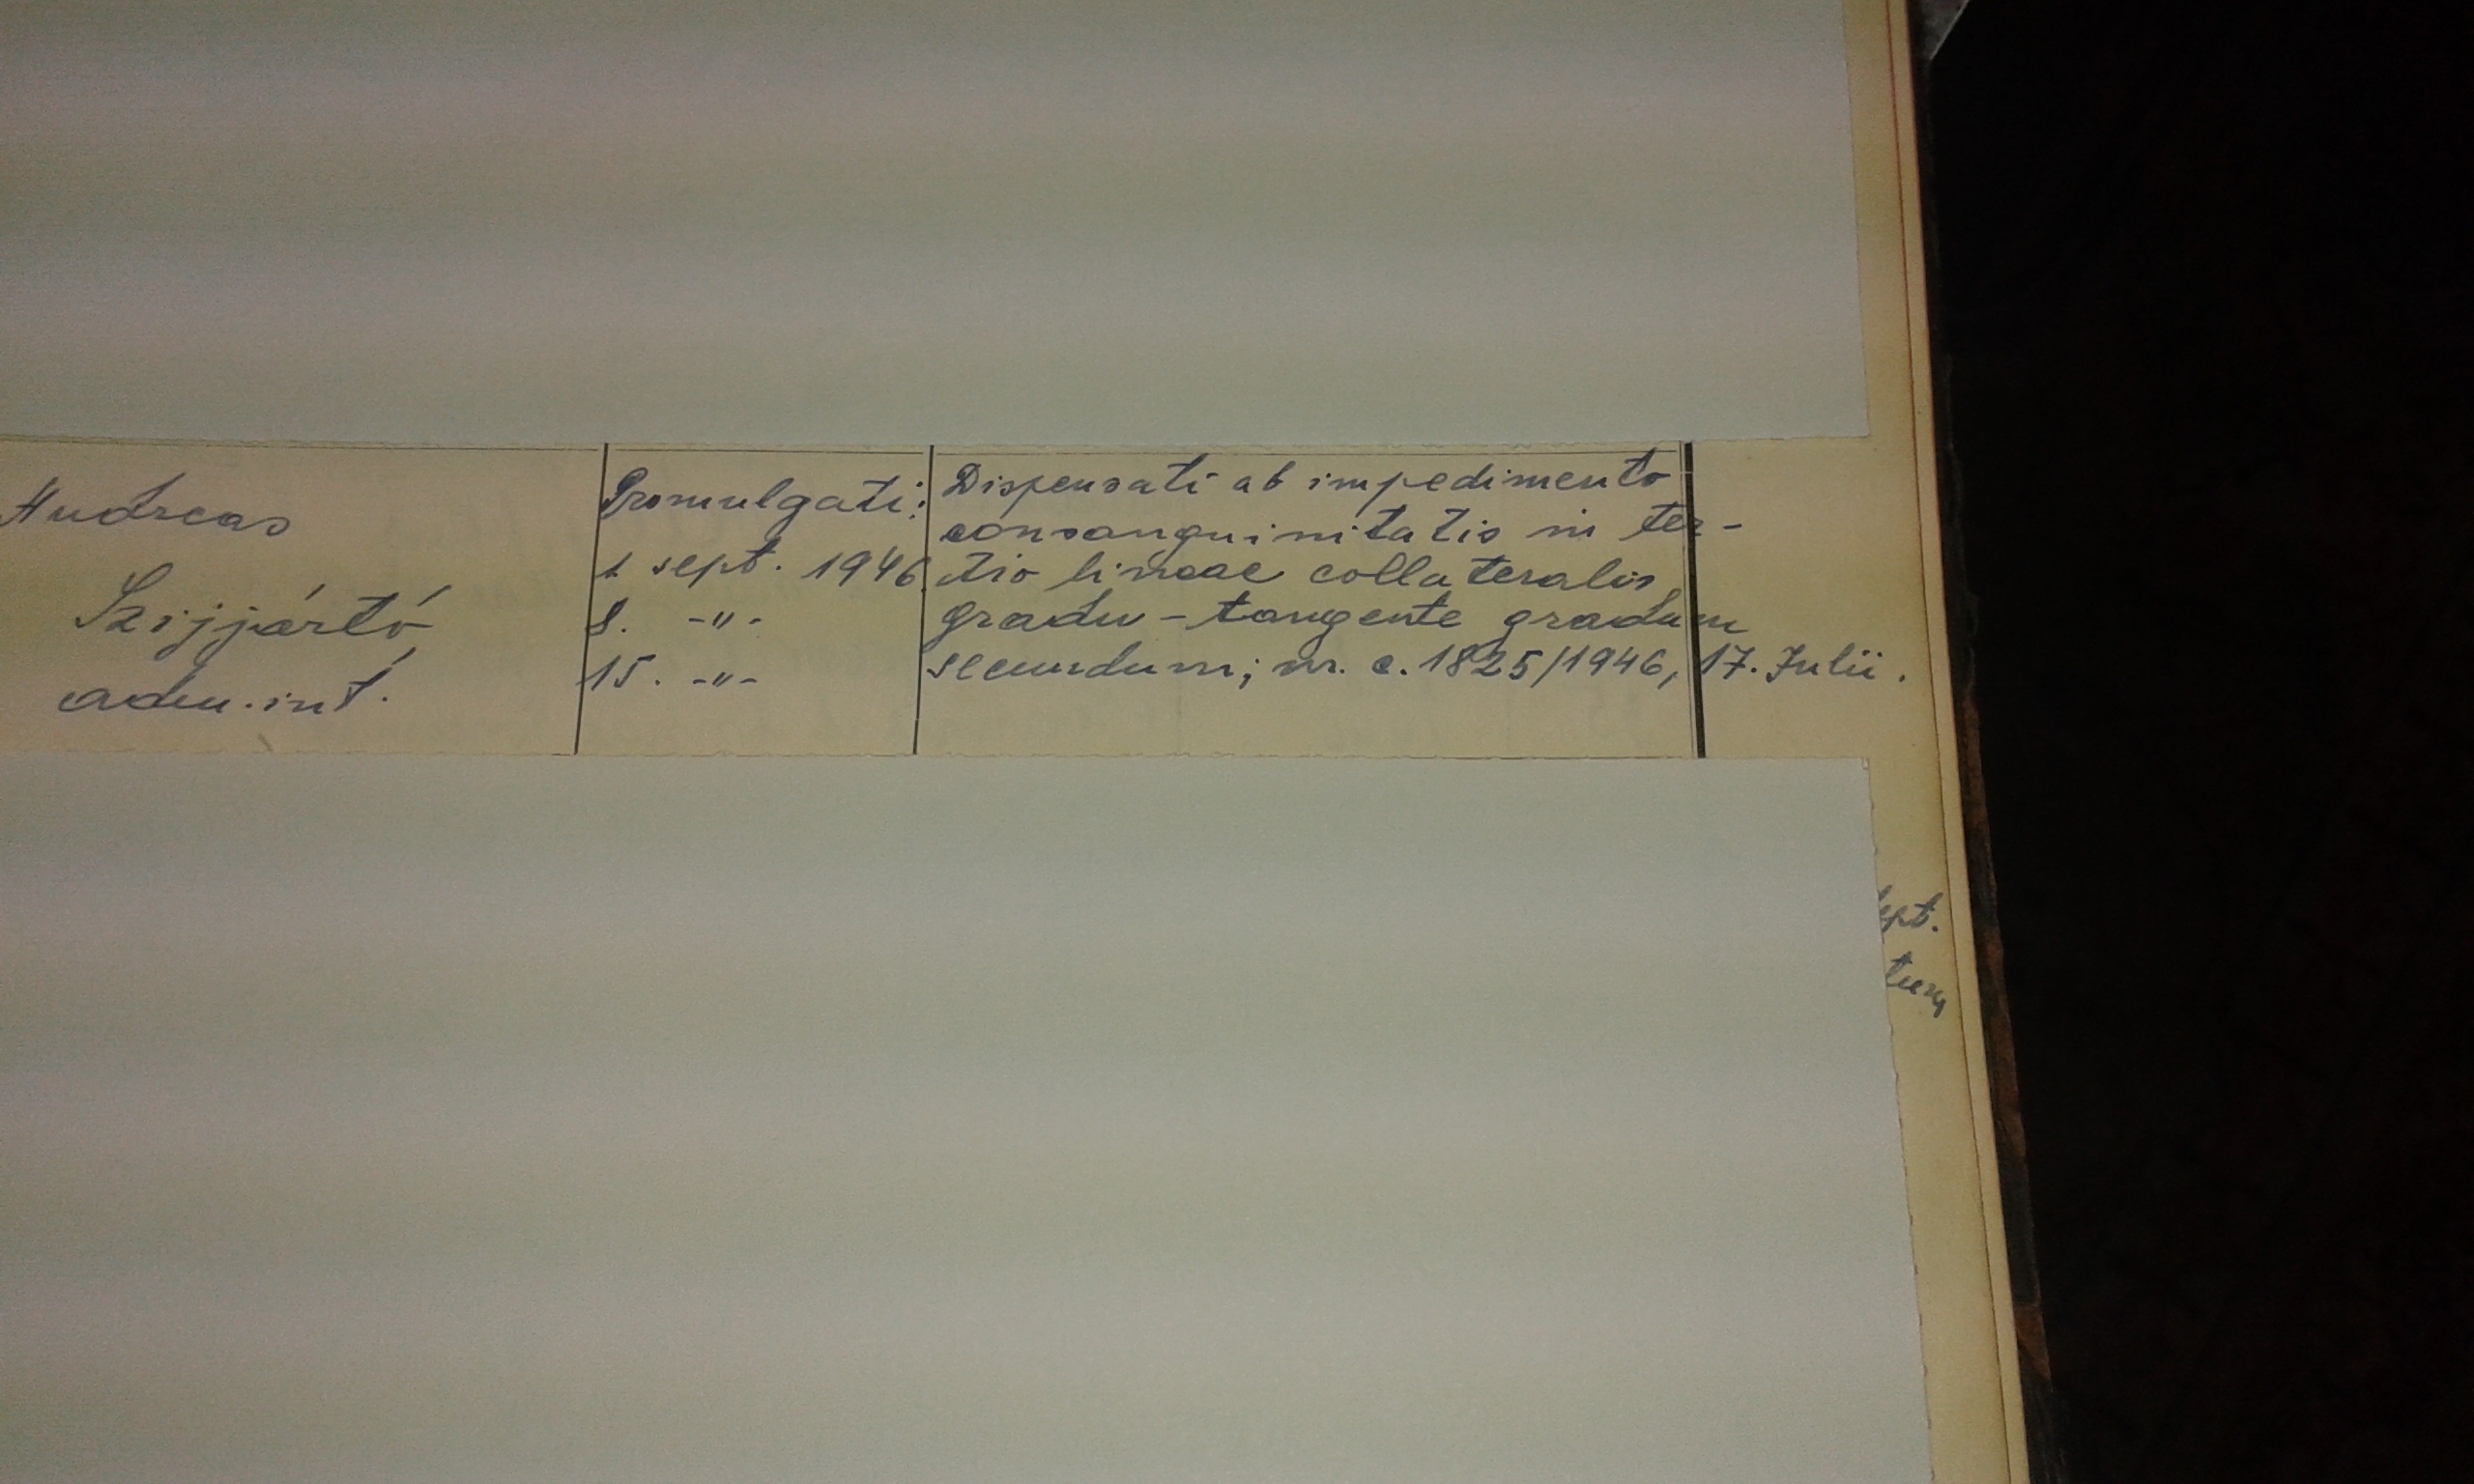 Andreas
Szijjártó
adm. int.
Promulgati:
1 sept. 1946
8. -"-
15. -"-
Dispensati ab impedimento
consanguinitatis in ter-
tio lineae collateralis
gradu - tangente gradum
secundum; nr. c. 1825/1946, 17. Julii.
ept.